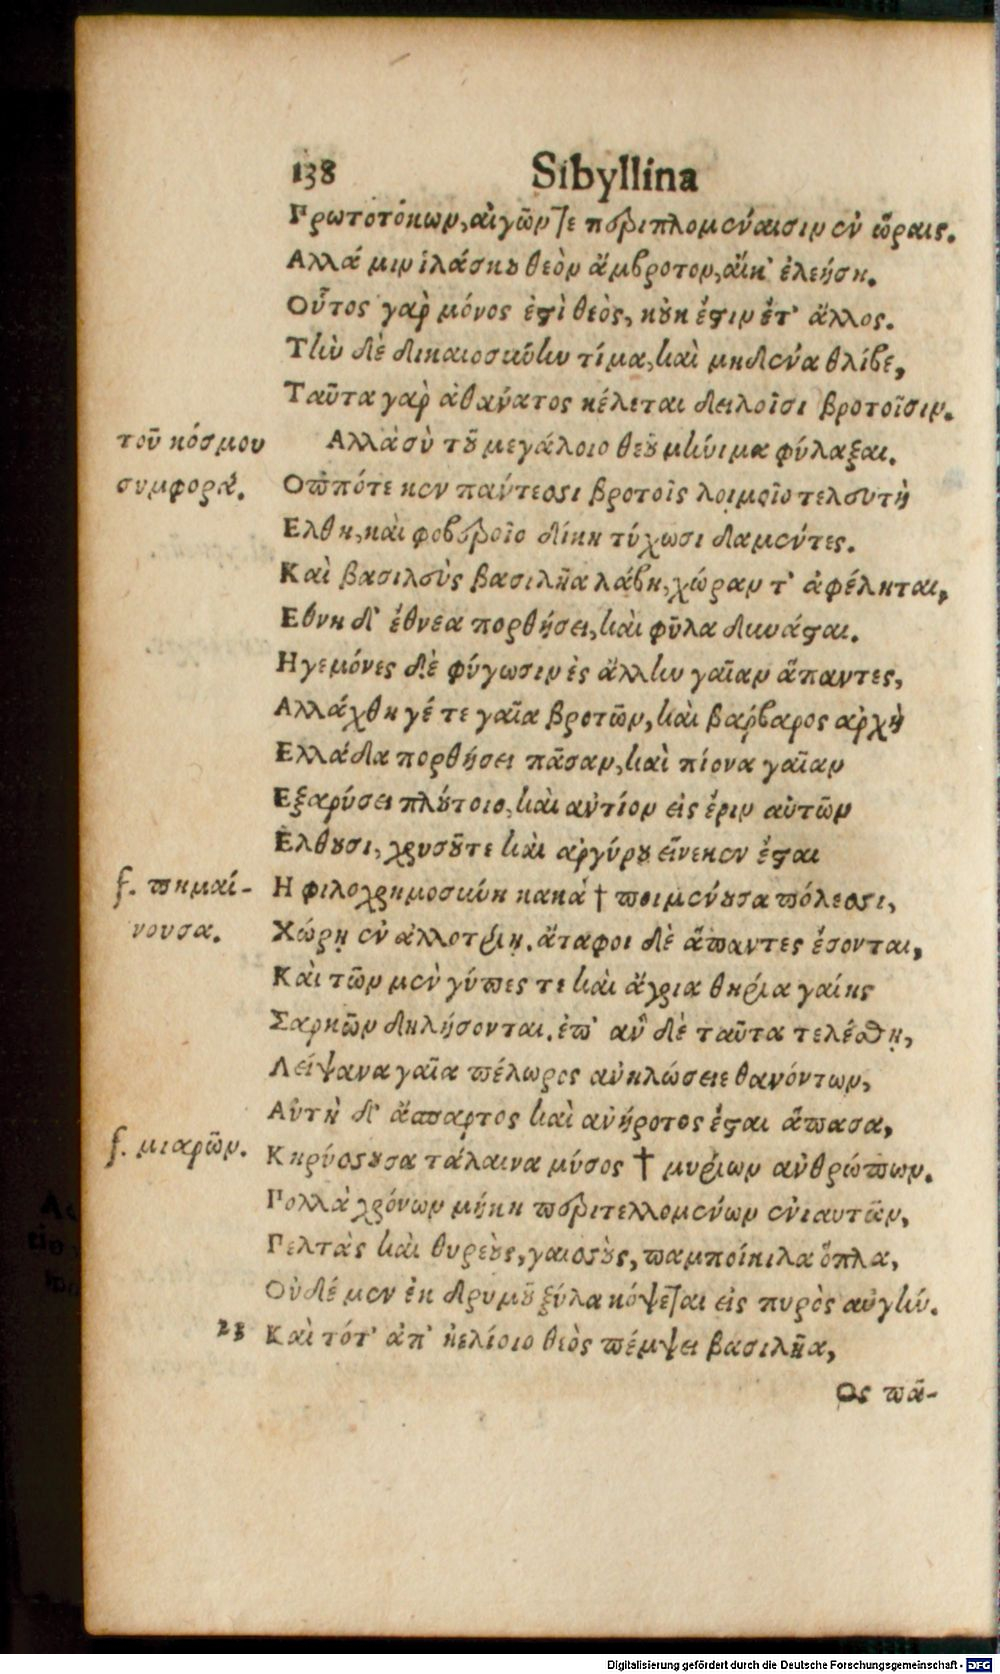 138 Sibyllina
Πρωτοτόκων, αἰγῶν τε περιπλομέναισιν ἐν ὥραις.
Αλλά μιν ἱλάσκου θεὸν ἄμβροτον, αἴκ' ἐλεήσῃ.
Οὗτος γὰρ μόνος ἐστὶ θεὸς, κοὐκ ἔστιν ἔτ' ἄλλος.
Τὴν δὲ δικαιοσύνην τίμα, καὶ μηδένα θλίβε,
Ταῦτα γὰρ ἀθάνατος κέλεται δειλοῖσι βροτοῖσιν.
τοῦ κόσμου Αλλὰ σὺ τοῦ μεγάλοιο θεοῦ μήνιμα φύλαξαι.
συμφορά. Οππότε κεν πάντεσσι βροτοῖς λοιμοῖο τελευτὴ
Ελθη, καὶ φοβεροῖο δίκη τύχωσι δαμέντες.
Καὶ βασιλεὺς βασιλῆα λάβη, χώραν τ' ἀφέληται,
Εθνη δ' ἔθνεα πορθήσει, καὶ φῦλα δυνάσται.
Ηγεμόνες δὲ φύγωσιν ἐς ἄλλην γαῖαν ἅπαντες,
Αλλάχθη γέ τε γαῖα βροτῶν, καὶ βάρβαρος ἀρχὴ
Ελλάδα πορθήσει πᾶσαν, καὶ πίονα γαῖαν
Εξαρύσει πλούτοιο, καὶ ἀντίον εἰς ἔριν αὐτῶν
Ελθουσι, χρυσοῦ τε καὶ ἀργύρου εἵνεκεν ἔσται
f. πημαί- Η φιλοχρημοσύνη κακὰ † ποιμένουσα πόλεσσι,
νουσα. Χώρῃ ἐν ἀλλοτρίῃ. ἄταφοι δὲ ἅπαντες ἔσονται,
Καὶ τῶν μὲν γύπες τε καὶ ἄγρια θηρία γαίης
Σαρκῶν δηλήσονται. ἐπ' ἂν δὲ ταῦτα τελέσθῃ,
Λείψανα γαῖα πέλωρος ἀνηλώσειε θανόντων,
Αὐτὴ δ' ἄσπαρτος καὶ ἀνήροτος ἔσται ἅπασα,
f. μιαρῶν. Κηρύσσουσα τάλαινα μύσος † μυρίων ἀνθρώπων.
Πολλὰ χρόνων μήκη περιτελλομένων ἐνιαυτῶν,
Πελτὰς καὶ θυρεοὺς, γαισσοὺς, παμποίκιλα ὅπλα,
Οὐδέ μεν ἐκ δρυμοῦ ξύλα κόψεται εἰς πυρὸς αὐγήν.
23 Καὶ τότ' ἀπ' ἠελίοιο θεὸς πέμψει βασιλῆα,
Ος πᾶ-
Digitalisierung gefördert durch die Deutsche Forschungsgemeinschaft - DFG